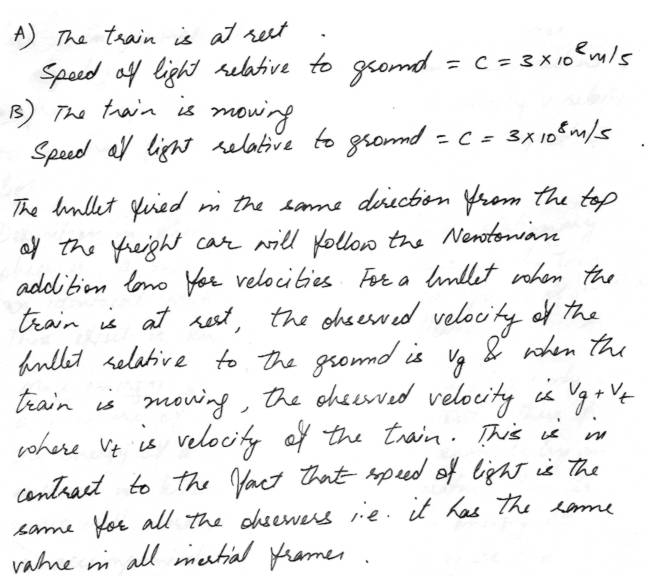 A) The train is at rest.
Speed of light relative to ground = C = 3 × 10⁸ m/s
B) The train is moving
Speed of light relative to ground = C = 3 × 10⁸ m/s.
The bullet fired in the same direction from the top
of the freight car will follow the Newtonian
addition law for velocities. For a bullet when the
train is at rest, the observed velocity of the
bullet relative to the ground is Vg & when the
train is moving, the observed velocity is Vg + Vt
where Vt is velocity of the train. This is in
contrast to the fact that speed of light is the
same for all the observers i.e. it has the same
value in all inertial frames.